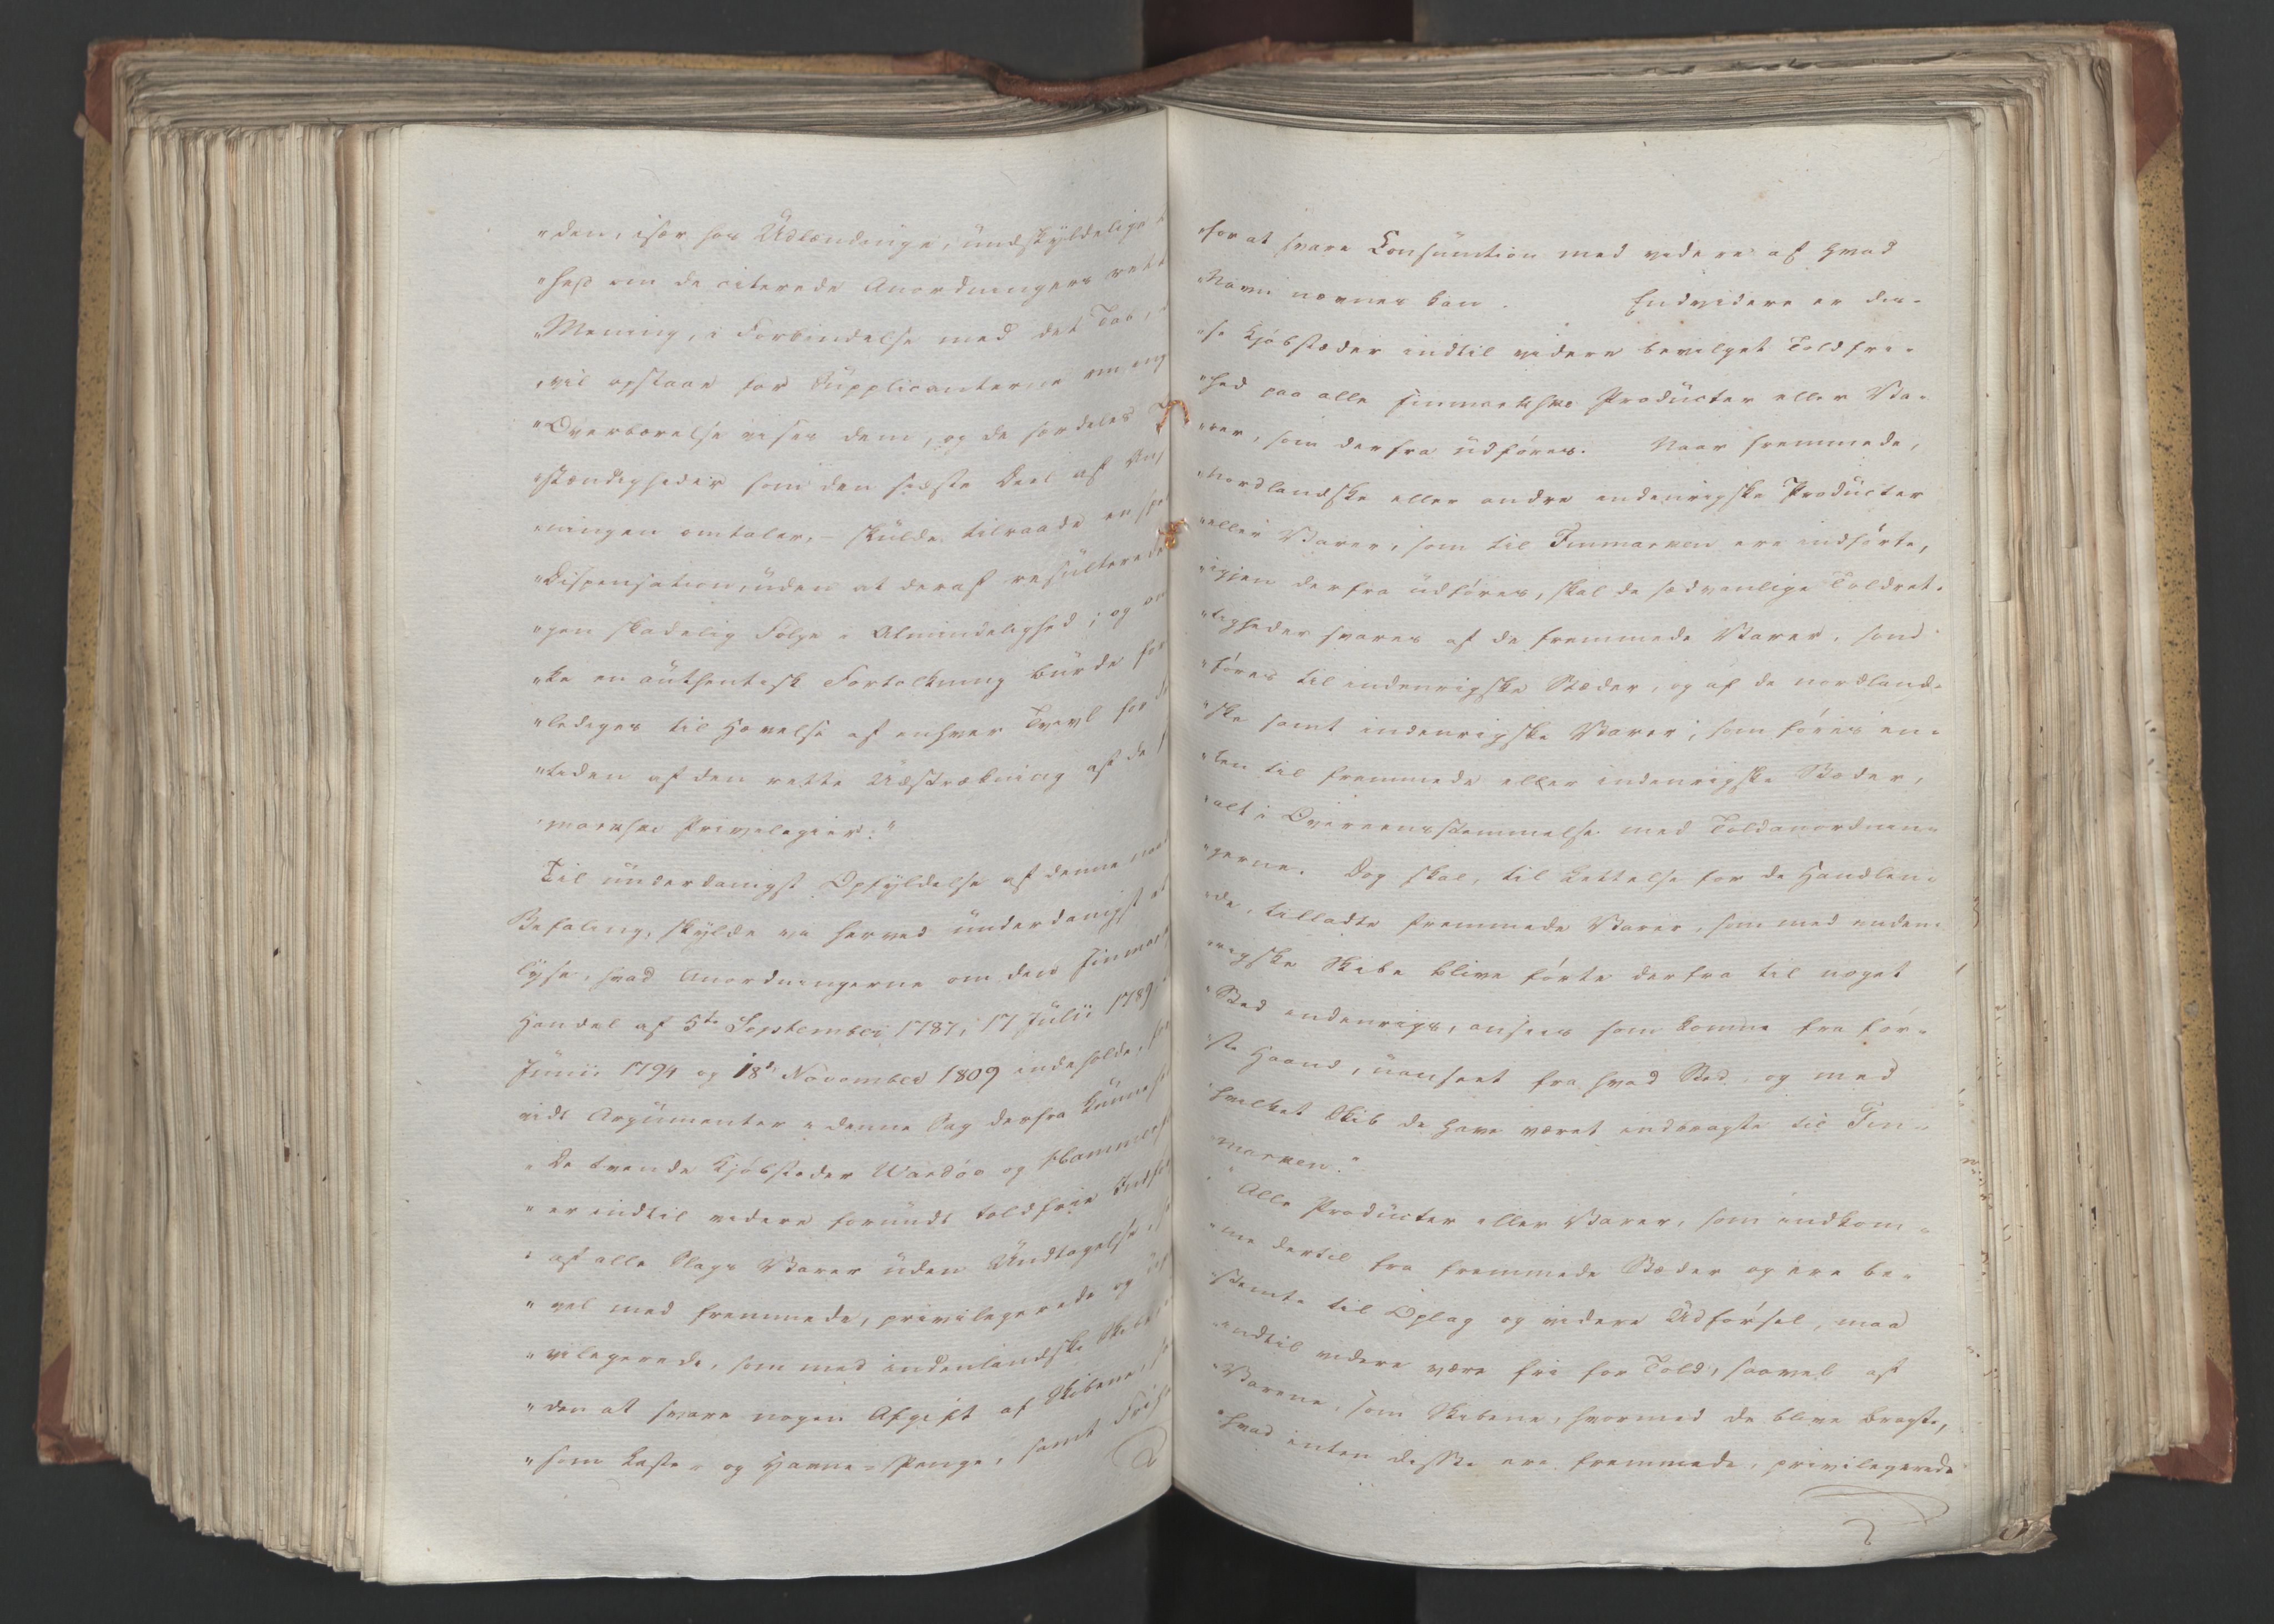 "den, især hos Udlændinge, undskyldelige
"hed om de citerede Anordningers rett
"Mening, i Forbindelse med det Tab,
"vil opstaae for Supplicanterne om ing
"Overbærelse vises dem, og de særdeles
"stændigheder som den sidste Deel af
"ningen omtaler, - skulde tilraade en
"Dispensation, uden at deraf resulterede
"gen skadelig Følge i Almindelighed; og om
"ke en authentisk Fortolkning burde for
"lediges til Hævelse af enhver Tvivl for
"tiden af den rette Udstrækning af de
"markske Privilegier."
Til underdanigst Opfyldelse af denne
Befaling, skulde vi herved underdanigst
lyse, hvad Anordningerne om den Finmark
Handel af 5te September 1787, 17 Julii 1789
Junii 1794 og 18de November 1809 indeholde,
vidt Argumenter i denne Sag derfra kunne
"De tvende Kjøbstæder Wardøe og Hammerf
"er indtil videre forundt toldfrie Indf
"af alle Slags Varer uden Undtagelse,
"vel med fremmede, privilegerede og
"vilegerede, som med indenlandske Skibe
"den at svare nogen Afgift af Skibene,
"som Laste- og Havne-Penge, samt
"for at svare Consumtion med videre af hvad
"Navn nævnes kan. Endvidere er dis-
"se Kjøbstæder indtil videre bevilget Toldfri-
"hed paa alle finmarkske Producter eller Va-
"rer, som derfra udføres. Naar fremmede,
"nordlandske eller andre indenrigske Producter
"eller Varer, som til Finmarken ere indførte,
"igjen derfra udføres, skal de sædvanlige Toldret-
"tigheder svares af de fremmede Varer, som
"føres til indenrigske Stæder, og af de nordland-
"ske samt indenrigske Varer, som føres en-
"ten til fremmede eller indenrigske Stæder,
"alt i Overeensstemmelse med Toldanordnin-
"gerne. Dog skal, til Lettelse for de Handlen-
"de, tilladte fremmede Varer, som med inden-
"rigske Skibe blive førte derfra til noget
"Sted indenrigs, ansees som komne fra før-
"ste Haand, uanseet fra hvad Sted, og med
"hvilket Skib de have været indbragte til Fin-
"marken."
"Alle Producter eller Varer, som indkom-
"me dertil fra fremmede Stæder og ere be-
"stemte til Oplag og videre Udførsel, maa
"indtil videre være fri for Told, saavel af
"Varene, som Skibene, hvormed de blive bragte,
"hvad enten disse ere fremmede, privilegerede